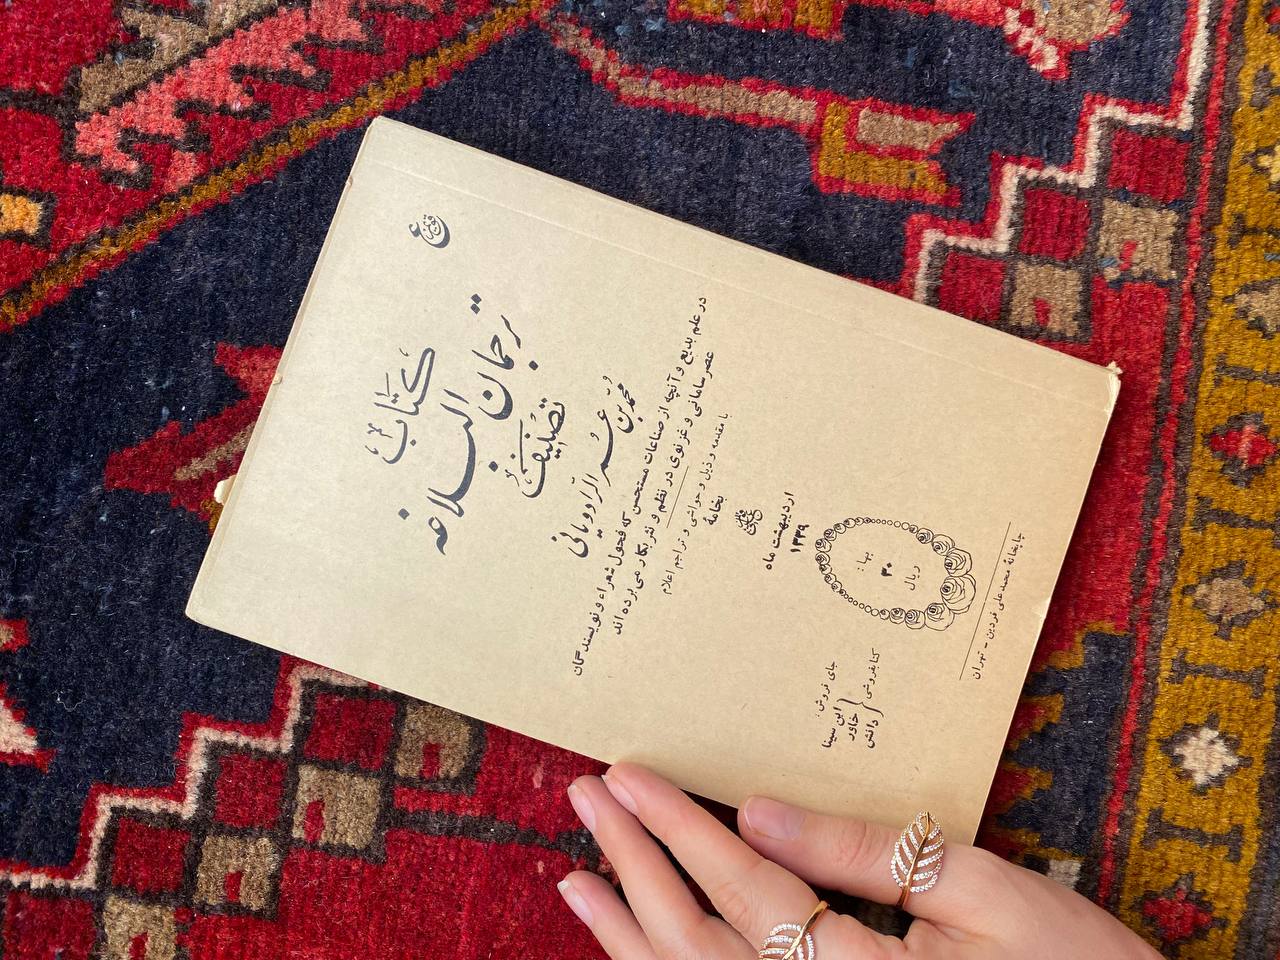 کتاب
ترجمان البلاغه
تصنیف
محمد بن عمر الرادویانی
در علم بدیع و آنچه از صناعات مستحسن که فحول شعراء و نویسندگان
عصر سامانی و غزنوی در نظم و نثر بکار می برده اند
با مقدمه و ذیل و حواشی و تراجم اعلام
بخامهٔ
اردیبهشت ماه
۱۳۳۹
بها:
۳۰
ریال
جای فروش:
ابن سینا
خاور
دانش
کتابفروشی
چاپخانهٔ محمدعلی فردین - تهران